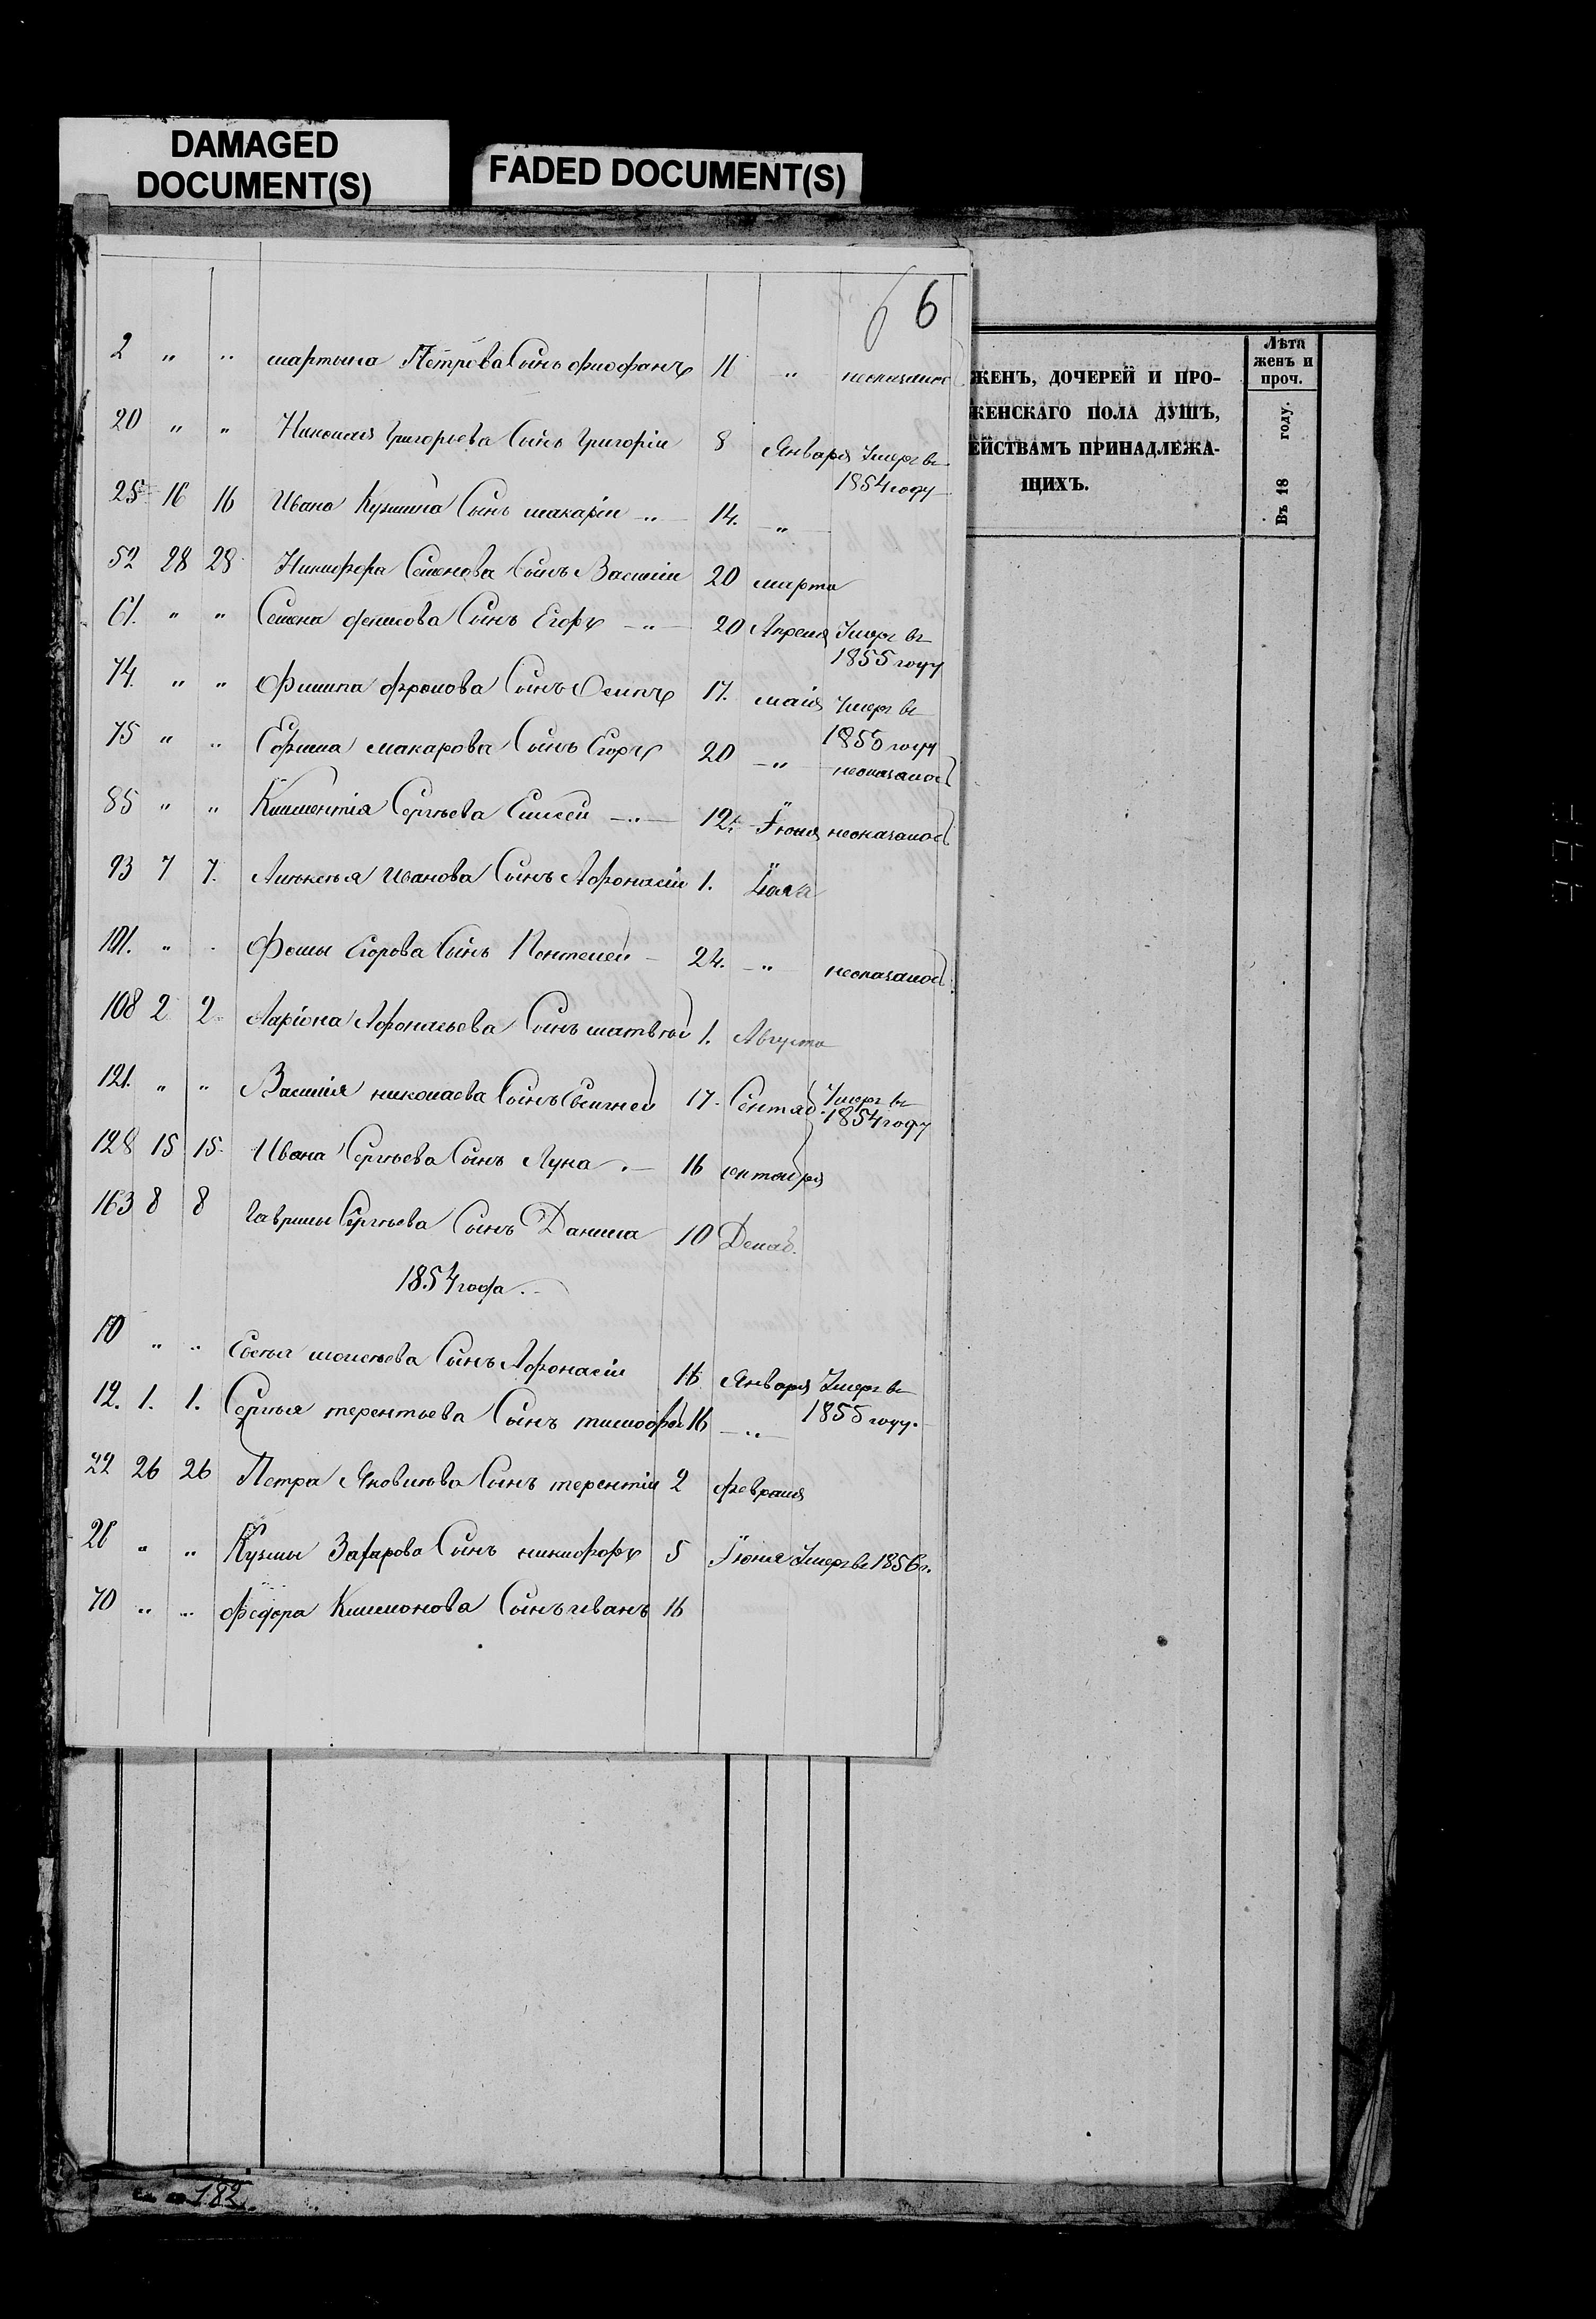 DAMAGED
DOCUMENT(S)
FADED DOCUMENT(S)
6 6
2 " " мартына Петрова Сынъ фиофанъ 11 " неоказалос
20 " " Николая Григорьева Сынъ Григорiи 8 Января Умеръ въ
1854 году
25 16 16 Ивана Кузмина Сынъ макарiи " 14. "
52 28 28 Никифора Семенова Сынъ Василiи 20 марта
61. " " Семена фенисова Сынъ Егоръ " 20 Апреля Умеръ въ
1855 году
74. " " Филипа фролова Сынъ Осипъ 17. маiя Умеръ въ
1855 году
75 " " Ефима макарова Сынъ Егоръ 20 " неоказалос
85 " " Климентiя Сергѣева Елисеи " 12. Iюня неоказалос
93 7 7. Алѣксѣя иванова Сынъ Афонасiи 1. Iюля
101. " " Фомы Егорова Сынъ Понтелеи 24. " неоказалос
108 2 2 Ларiона Афонасьева Сынъ матвѣи 1. Августа
121. " " Василiя николаева Сынъ Евсигнеи 17. Сентяб. Умеръ въ
1854 году
128 15 15. Ивана Сергѣева Сынъ Лука 16 сентебря
163 8 8 Гаврилы Сергѣева Сынъ Данила 10 Декаб.
1854 года.
10 " " Евсѣя моисѣева Сынъ Афонасiи 16 Января Умеръ въ
1855 году.
12. 1. 1. Сергѣя терентьева Сынъ тимофѣи 16 "
22 26 26 Петра Яковлѣва Сынъ терентiи 2 февраля
28 " " Кузмы Захарова Сынъ никифоръ 5 Iюня Умеръ въ 1856 г.
70 " " федора Климонова Сынъ иванъ 16
ЖЕНЪ, ДОЧЕРЕЙ И ПРО-
ЖЕНСКАГО ПОЛА ДУШЪ,
ЕЙСТВАМЪ ПРИНАДЛЕЖА-
ЩИХЪ.
Лѣта
женъ и
проч.
Въ 18 году.
182.